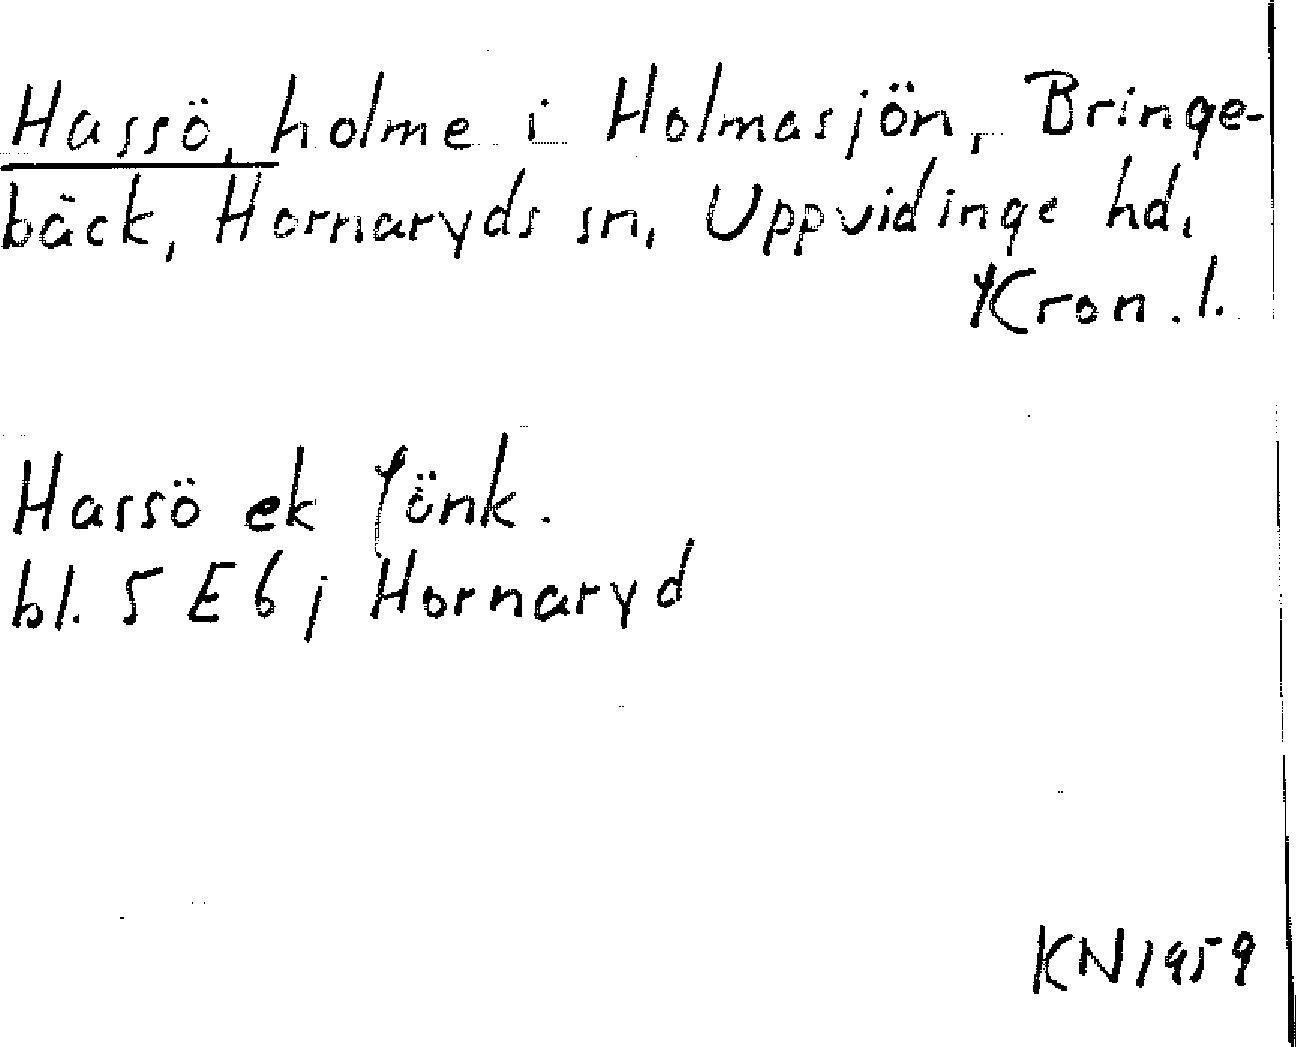 Hassö, holme i Holmasjön, Bringe-
bäck, Hornaryds sn, Uppvidinge hd,
Kron. l.
Hassö ek Jönk.
bl. 5 E 6 j Hornaryd
KN 1959